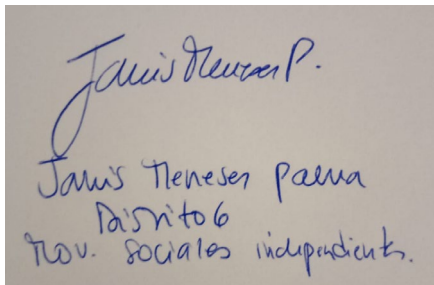 Janis Meneses P.
Janis Meneses Palma
Distrito 6
Mov. sociales independientes.